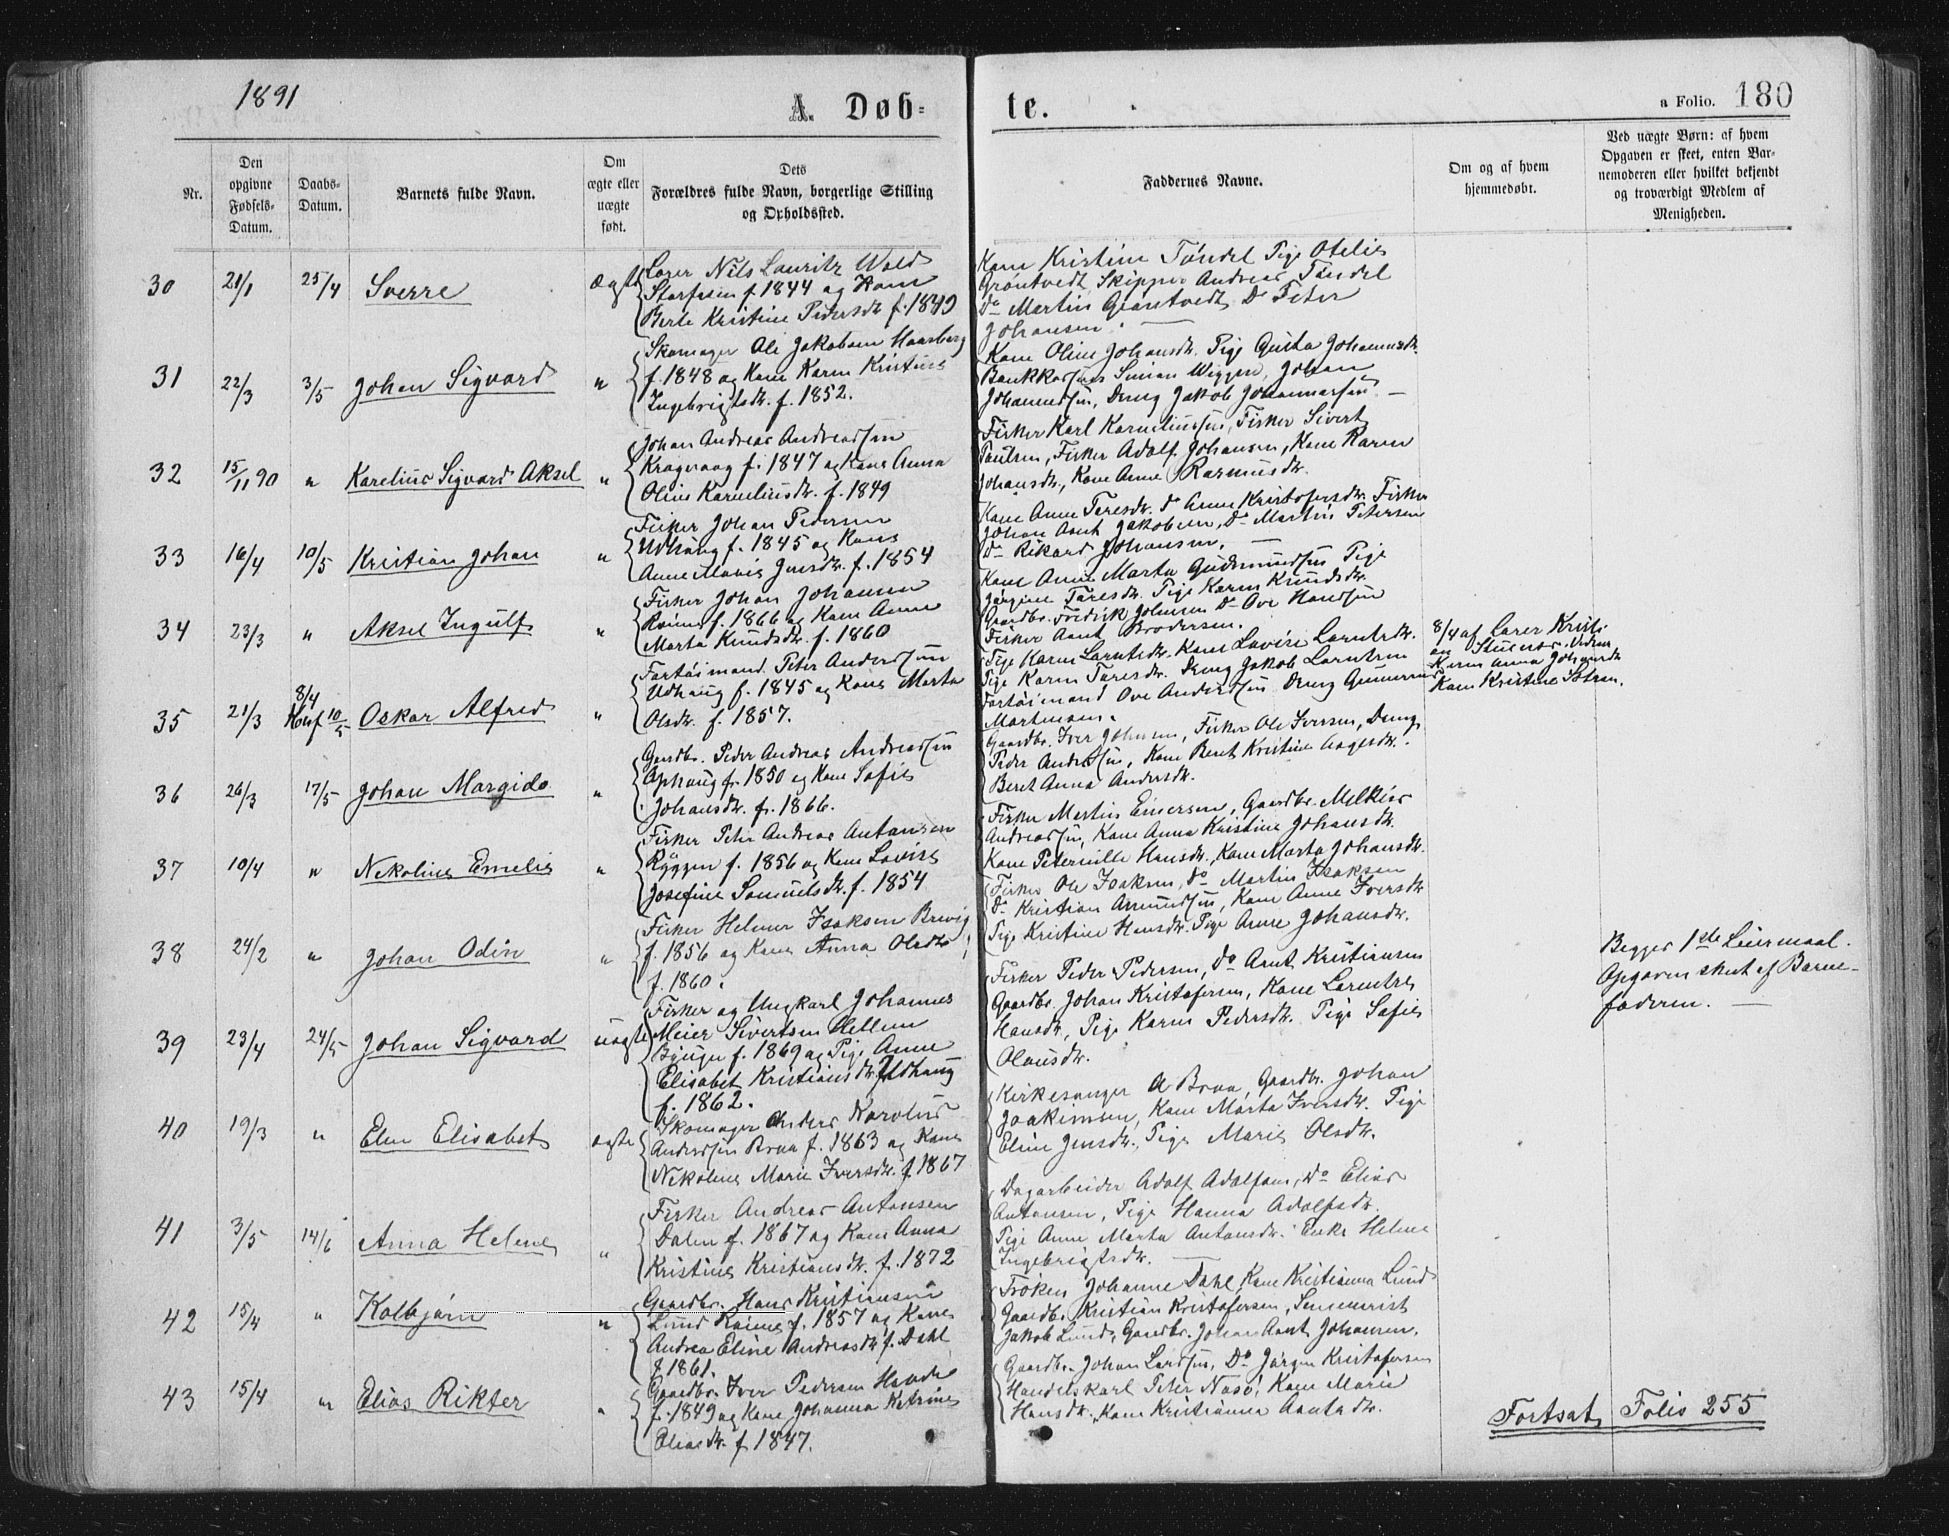 1891
A. Døb=
te.
a Folio. 180
Nr.
Den opgivne Fødsels-Datum.
Daabs-Datum.
Barnets fulde Navn.
Om ægte eller uægte født.
Dets Forældres fulde Navn, borgerlige Stilling og Opholdssted.
Faddernes Navne.
Om og af hvem hjemmedøbt.
Ved uægte Børn: af hvem Opgaven er skeet, enten Barnemoderen eller hvilket bekjendt og troværdigt Medlem af Menigheden.
30 21/1 25/4 Sverre Ægte
Nils Lauritz Wold
Storfosen f. 1844 og Kone
Berte Kristine Pedersdt. f. 1849
Kone Kristine Tøndel Pige Otelie
Grøntvedt, Skipper Andreas Tøndel
Do Martin Grøntvedt, Do Peter
Johansen.
31 22/3 3/5 Johan Sigvard "
Skomager Ole Jakobsen Haasberg
f. 1848 og Kone Karen Kristine
Ingebrigtsdt. f. 1852.
Kone Oline Johansdt. Pige Gusta Johannesdt.
Simon Wiggen, Johan
Johannessen, Dreng Jakob Johannessen
32 15/11 90 " Karelius Sigvard Aksel "
Johan Andreas Andreassen
Kragvaag f. 1847 og Kone Anna
Oline Korneliusdt. f. 1849
Fisker Karl Korneliussen, Fisker Sivert
Paulsen, Fisker Adolf Johansen, Kone Karen
Johansdt., Kone Anne Rasmusdt.
33 16/4 10/5 Kristian Johan "
Fisker Johan Pedersen
Udhaug f. 1845 og Kone
Anne Marie Jensdt. f. 1854
Kone Anne Taresdt. Do Anne Kristofersdt. Fisker
Johan Arnt Jakobsen, Do Martin Petersen
Do Rikard Johansen.
34 23/3 " Aksel Ingulf "
Fisker Johan Johansen
f. 1866 og Kone Anne
Marta Knudsdt. f. 1860
Kone Anne Marta Gudmundsen Pige
Jørgine Taresdt. Pige Karen Knudsdt.
Gaardbr. Fredrik Johnsen Do Ove Hansen
Fisker Arnt Brodersen.
35 21/3 8/4 10/5 Oskar Alfred "
Fortøimand. Peter Anderssen
Udhaug f. 1845 og Kone Marta
Olsdt. f. 1857.
Pige Karen Larntsdt. Kone Lovise Larntsdt.
Pige Karen Taresdt. Dreng Jakob Larntsen
Fortøimand Ove Anderssen Dreng
Martinsen.
8/4 af Lærer Kristi-
an
Anna Johansdt.
Kone Kristine
36 26/3 17/5 Johan Margido "
Gaardbr. Peder Andreas Andreassen
Ophaug f. 1850 og Kone Sofie
Johansdt. f. 1866.
Gaardbr. Iver Johnsen, Fisker Ole Iversen, Dreng
Peder Anderssen, Kone Beret Kristine Aagesdt.
Beret Anna Andersdt.
37 10/4 " Nekoline Emelie "
Fisker Peter Andreas Antonsen
Ryggen f. 1856 og Kone Lovise
Josefine Samuelsdt. f. 1854
Fisker Martin Einersen, Gaardbr. Melkior
Andreassen, Kone Anna Kristine Johansdt.
Kone Peternille Hansdt., Kone Marta Johansdt.
38 24/2 " Johan Odin "
Fisker Helmer Isaksen Brevig
f. 1856 og Kone Anna Olsdt.
f. 1860.
Fisker Ole Isaksen, Do Martin Isaksen
Do Kristian Amundsen, Kone Anne Iversdt.
Pige Kristine Hansdt. Pige Anne Johansdt.
39 23/4 24/5 Johan Sigvard uægte
Fisker og Ungkarl Johannes
Meier Sivertsen Hellem
Bjugn f. 1869 og Pige Anne
Elisabet Kristiansdt. Udhaug
f. 1862.
Fisker Peder Pedersen, Do Arnt Kristiansen
Gaardbr. Johan Kristofersen, Kone Larentse
Hansdt., Pige Karen Pedersdt. Pige Sofie
Olausdt.
Begges 1ste Leiermaal.
Opgaven skeet af Barne-
faderen.
40 19/3 " Elen Elisabet ægte
Skomager Anders Karolus
Anderssen Braa f. 1863 og Kone
Nekoline Marie Iversdt. f. 1867
Kirkesanger A Braa, Gaardbr. Johan
Joakimsen, Kone Marta Iversdt. Pige
Eline Jensdt., Pige Marie Olsdt.
41 3/5 14/6 Anna Helene "
Fisker Andreas Antonsen
Dalen f. 1867 og Kone Anna
Kristine Kristiansdt. f. 1872
Dagarbeider Adolf Adolfsen, Do Elias
Antonsen, Pige Hanna Adolfsdt.
Pige Anne Marta Antonsdt. Enke Helene
Ingebrigtsdt.
42 15/4 " Kolbjørn "
Gaardbr. Hans Kristiansen
Lund f. 1857 og Kone
Andrea Eline Andreasdt. f. Dahl
f. 1861.
Frøken Johanne Dahl, Kone Kristianna Lund
Gaardbr. Kristian Kristofersen, Seminarist
Jakob Lund, Gaardbr. Johan Arnt Johansen.
43 15/4 " Elias Rikter "
Gaardbr. Iver Pedersen
f. 1849 og Kone Johanna Katrine
Eliasdt. f. 1847.
Gaardbr. Johan Larssen, Do Jørgen Kristofersen
Handelskarl Peter Nasø, Kone Marie
Hansdt., Kone Kristianna Arntsdt.
Fortsat Folio 255